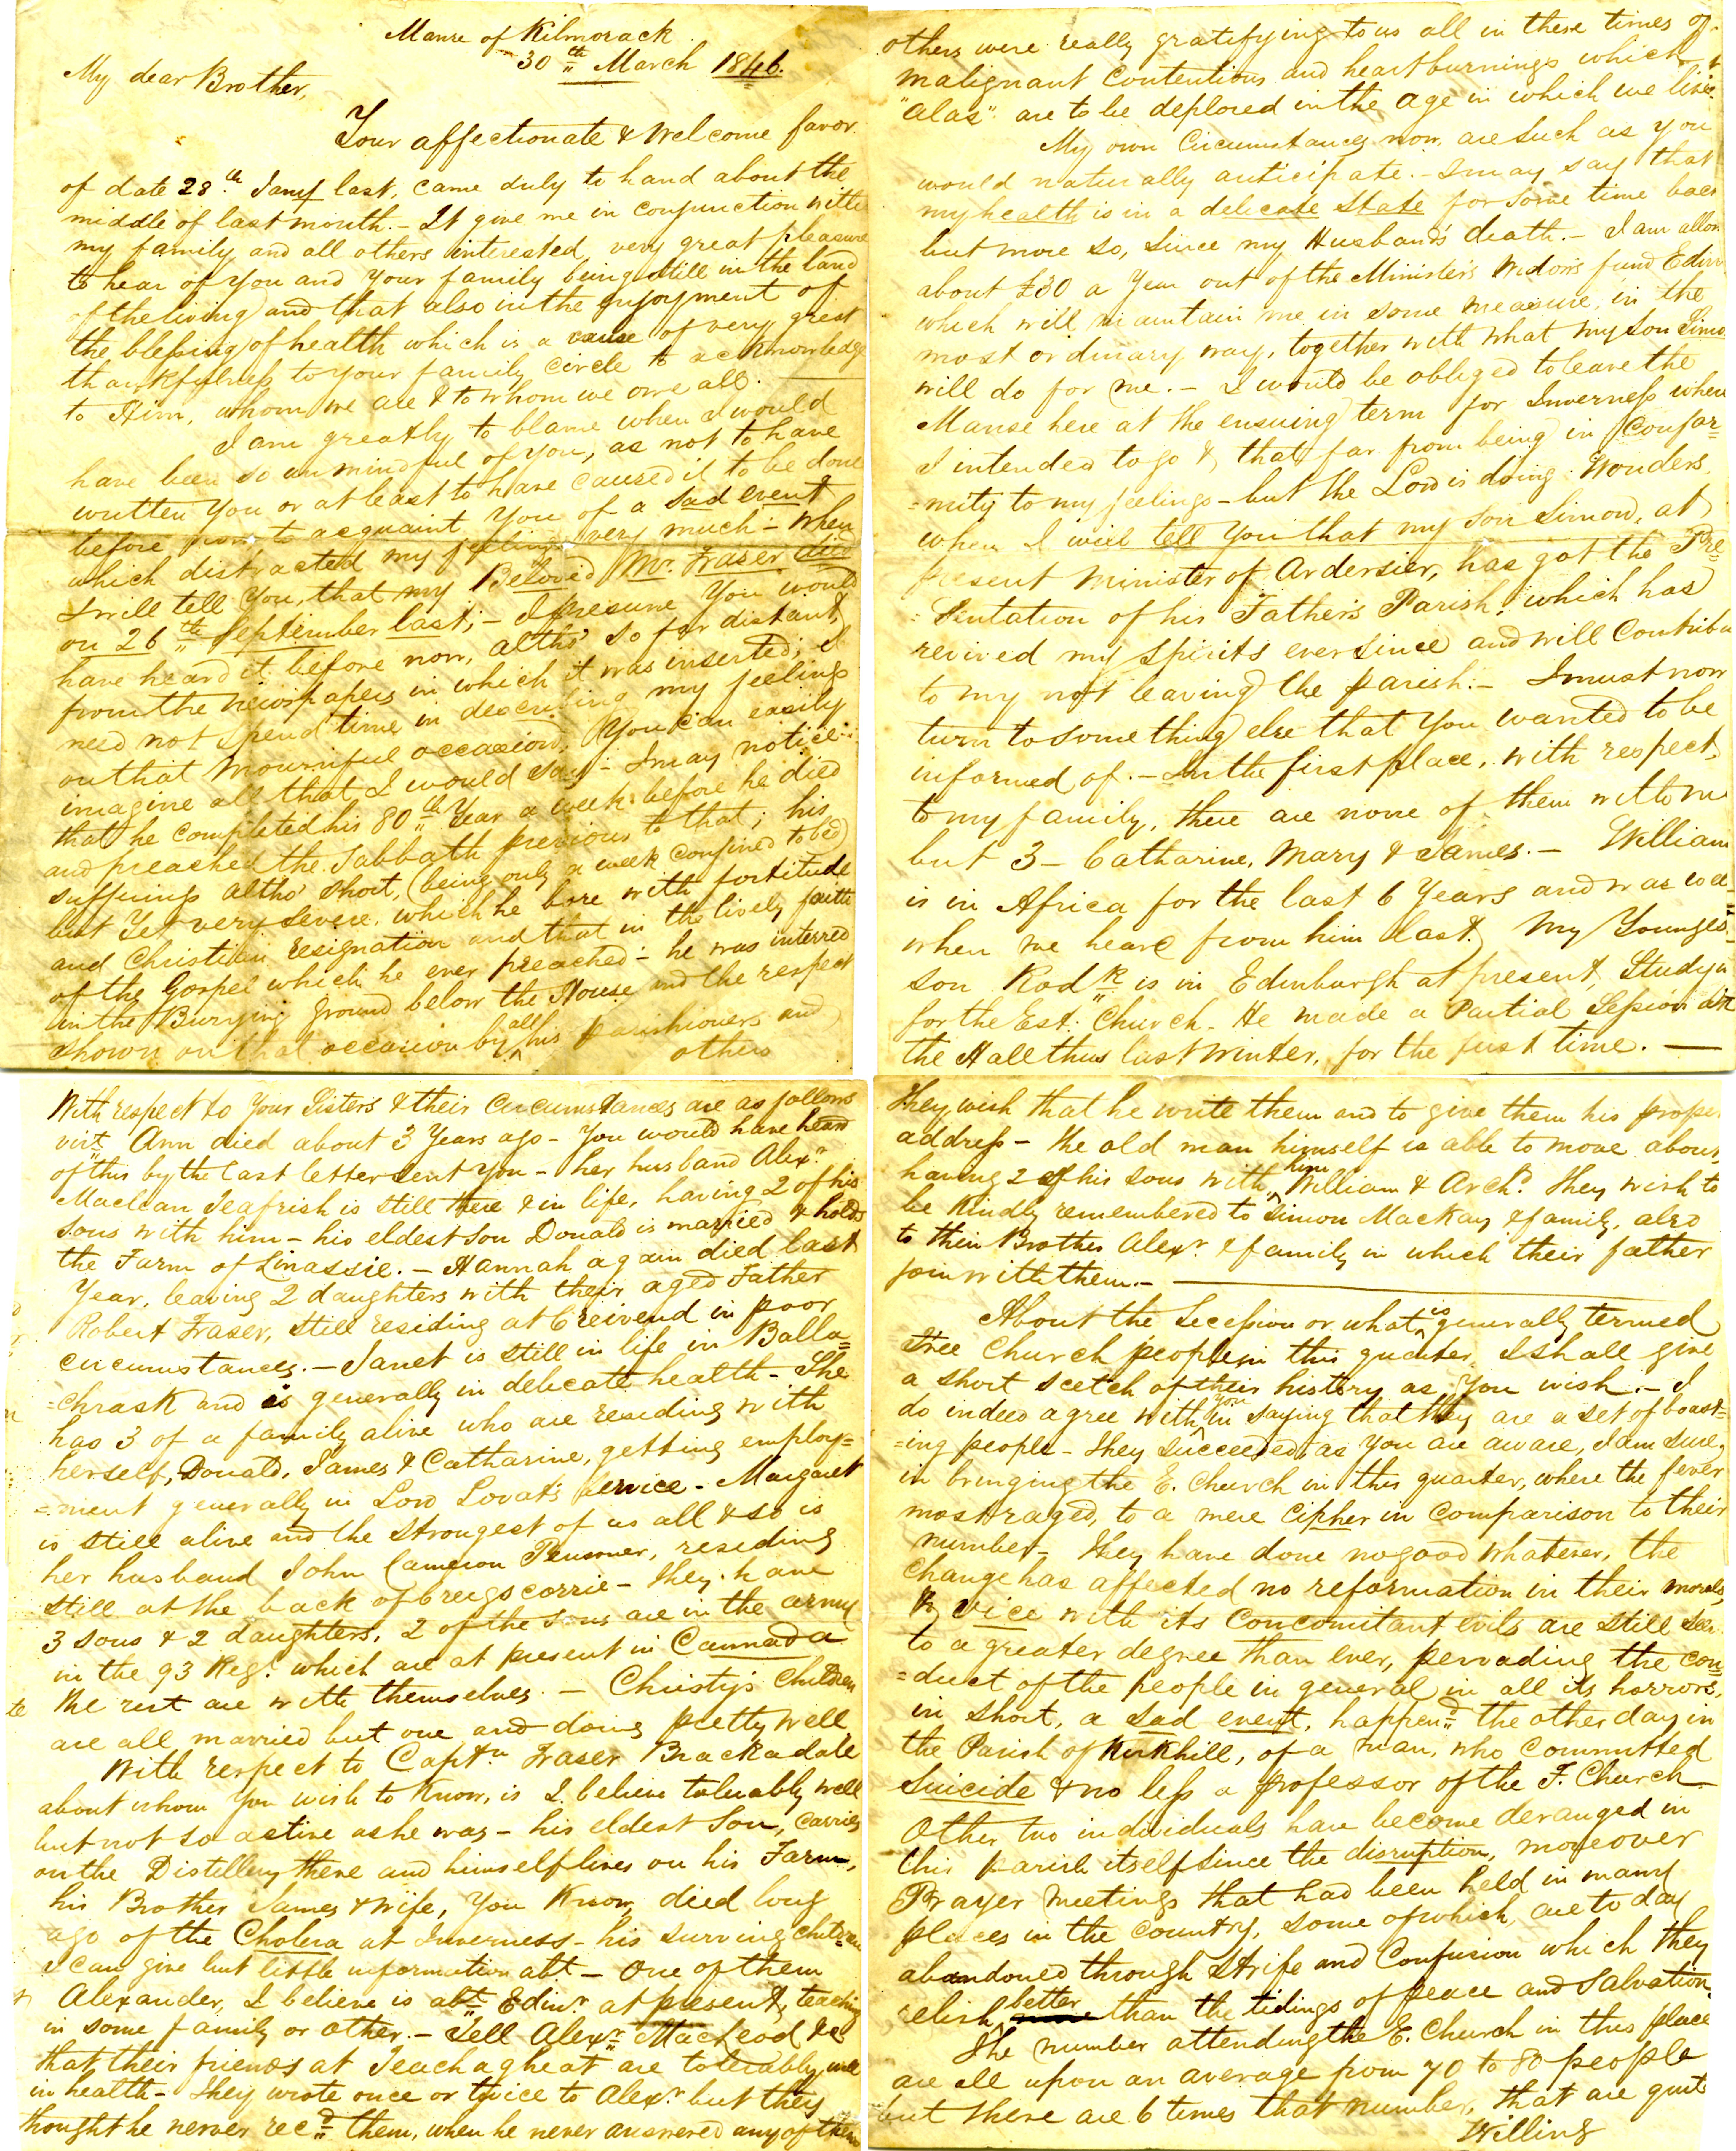 Manse of Kilmorack
30th March 1846.
My dear Brother,
Your affectionate & Welcome favor
of date 28th Jany last, came duly to hand about the
middle of last month. - It give me in conjunction with
my family and all others interested, very great pleasure
to hear of you and your family being still in the land
of the living and that also in the enjoyment of
the blessing of health which is a cause of very great
thankfulness to your family circle to acknowledge
to Him, whom we are & to whom we owe all. —
I am greatly to blame when I would
have been so unmindful of you, as not to have
written you or at least to have caused it to be done
before now to acquaint you of a sad event
which distracted my feelings very much - When
I will tell you, that my Beloved Mr. Fraser died
on 26th September last; - I presume you would
have heard it before now, altho' so far distant,
from the newspapers in which it was inserted; I
need not spend time in describing my feelings
on that mournful occasion, You can easily
imagine all that I would say - I may notice
that he completed his 80th Year a week before he died
and preached the Sabbath previous to that; his
suffering altho' short, (being only a week confined to bed)
but yet very severe, which he bore with fortitude
and Christian resignation and that in the lively faith
of the Gospel which he ever preached - he was interred
in the Burying ground below the House and the respect
shown on that occasion by all his parishioners and
others
others were really gratifying to us all in these times of
malignant Contentions and heartburnings which
"alas" are to be deplored in the age in which we live.
My own Circumstances now, are such as you
would naturally anticipate. - I may say that
my health is in a delicate state for some time back
but more so, since my Husband's death. - I am allow
about £30 a Year out of the Minister's Widow's fund Edinr
which will maintain me in some measure, in the
most ordinary way, together with what my son Simo
will do for me. - I would be obliged to leave the
Manse here at the ensuing term for Inverness where
I intended to go & that far from being in Confor=
=mity to my feelings - but the Lord is doing Wonders
when I will tell you that my son Simon, at
present Minister of Ardersier, has got the Pre=
=sentation of his Father's Parish, which has
revived my spirits ever since and will Contribu
to my not leaving the parish. - I must now
turn to something else that you wanted to be
informed of. - In the first place, with respect
to my family, there are none of them with me
but 3 - Catharine, Mary & James. - William
is in Africa for the last 6 Years and was well
when we heard from him last. My Younges
son Rodk is in Edinburgh at present, Studyin
for the Est. Church - He made a Partial Session at
the Hall thus last winter, for the first time. —
With respect to Your Sisters & their Circumstances are as follows
vizt Ann died about 3 Years ago - You would have heard
of this by the last letter sent you - her husband Alexr
Maclean Teafrish is still there & in life, having 2 of his
sons with him - his eldest son Donald is married & holds
the Farm of Linassie. - Hannah again died last
Year, leaving 2 daughters with their aged Father
Robert Fraser, still residing at Creivend in poor
circumstances. - Janet is still in life in Balla=
=chrask and is generally in delicate health - She
has 3 of a family alive who are residing with
herself, Donald, James & Catharine, getting employ=
=ment generally in Lord Lovat's service - Margaret
is still alive and the strongest of us all & so is
her husband John Cameron Pensioner, residing
still at the back of Creigscorrie - they have
3 sons & 2 daughters, 2 of the sons are in the army
in the 93 Regt. which are at present in Cannada
the rest are with themselves. - Christy's Children
are all married but one and doing pretty well
With respect to Captn Fraser Brackadale
about whom you wish to know, is I believe tolerably well
but not so active as he was - his eldest Son, carries
on the Distillery there and himself lives on his Farm,
his Brother James & wife, You Know, died long
ago of the Cholera at Inverness - his surviving children
I can give but little information abt - One of them
Alexander, I believe is abt Edinr at present, teaching
in some family or other. - Tell Alexr MacLeod &c
that their friends at Teachagheat are tolerably well
in health - They wrote once or twice to Alexr but they
thought he nerver recd them, when he never answered any of them
They wish that he write them and to give them his proper
address - the old man himself is able to move about,
having 2 of his sons with him William & Archd. They wish to
be kindly remembered to Simon Mackay & family, also
to their Brother Alexr & family in which their father
join with them. —
About the Secession or what is generally termed
Free Church people in this quarter, I shall give
a short scetch of their history as you wish. - I
do indeed agree with you in saying that they are a set of boast=
=ing people - They succeeded, as you are aware, I am sure,
in bringing the E. Church in this quarter, where the fever
most raged, to a mere cipher in comparison to their
number - They have done no good whatever, the
change has affected no reformation in their morals,
& vice with its Concomitant evils are still seen
to a greater degree than ever, pervading the con=
=duct of the people in general in all its horrors,
in short, a sad event, happend the other day in
the Parish of Kirkhill, of a man, who committed
Suicide & no less a professor of the F. Church
Other two individuals have become deranged in
this parish itself since the disruption, moreover
Prayer Meetings that had been held in many
places in the country, some of which are to day
abandoned through Strife and Confusion which they
relish better than the tidings of peace and salvation.
The number attending the E. Church in this place
are all upon an average from 70 to 80 people
but there are 6 times that number, that are quite
Willing